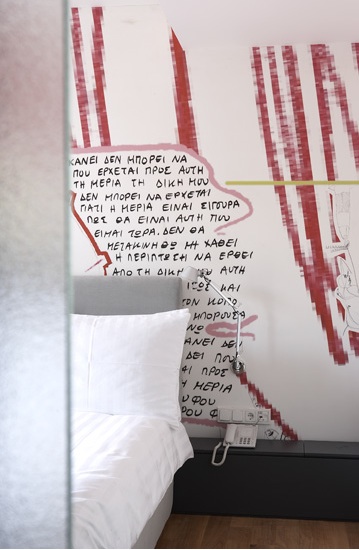 ΚΑΝΕΙ ΔΕΝ ΜΠΟΡΕΙ ΝΑ
ΠΟΥ ΕΡΧΕΤΑΙ ΠΡΟΣ ΑΥΤΗ
ΤΗ ΜΕΡΙΑ ΤΗ ΔΙΚΗ ΜΟΥ
ΔΕΝ ΜΠΟΡΕΙ ΝΑ ΕΡΧΕΤΑΙ
ΓΙΑΤΙ Η ΜΕΡΙΑ ΕΙΝΑΙ ΣΙΓΟΥΡΑ
ΠΩΣ ΘΑ ΕΙΝΑΙ ΑΥΤΗ ΠΟΥ
ΕΙΜΑΙ ΤΩΡΑ. ΔΕΝ ΘΑ
ΜΕΤΑΚΙΝΗΘΩ ΜΗ ΧΑΘΕΙ
Η ΠΕΡΙΠΤΩΣΗ ΝΑ ΕΡΘΕΙ
ΑΠΟ ΤΗ ΔΙΚΗ ΜΟΥ ΑΥΤΗ
ΙΣΩΣ ΚΑΙ
ΤΟΝ ΚΟΠΟ
ΜΠΟΡΟΥΣΑ
ΚΑΝΕΙ ΔΕ
ΔΕΙ ΠΟΥ
ΑΙ ΠΡΟΣ
Η ΜΕΡΙΑ